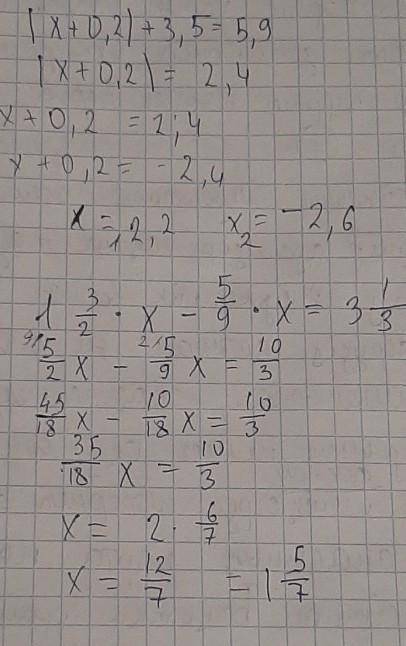 |x+0,2|+3,5=5,9
|x+0,2|= 2,4
x+0,2 = 2,4
x+0,2= -2,4
x₁=2,2 x₂=-2,6
1 3/2 · x - 5/9 · x = 3 1/3
9/ 5/2 x - 2/ 5/9 x = 10/3
45/18 x - 10/18 x = 10/3
35/18 x = 10/3
x = 2 · 6/7
x = 12/7 = 1 5/7